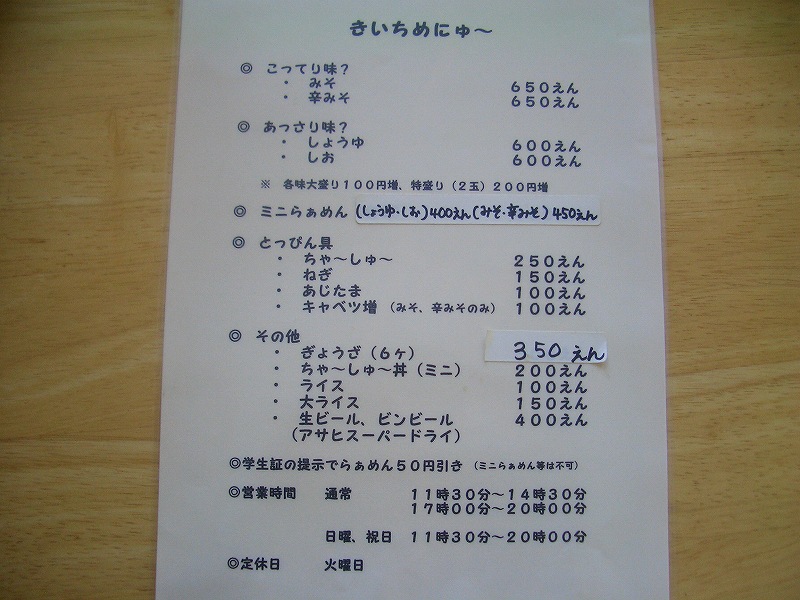 きいちめにゅ〜
◎ こってり味？
・ みそ ６５０えん
・ 辛みそ ６５０えん
◎ あっさり味？
・ しょうゆ ６００えん
・ しお ６００えん
※ 各味大盛り１００円増、特盛り（２玉）２００円増
◎ ミニらぁめん (しょうゆ・しお)400えん(みそ・辛みそ)450えん
◎ とっぴん具
・ ちゃ〜しゅ〜 ２５０えん
・ ねぎ １５０えん
・ あじたま １００えん
・ キャベツ増 （みそ、辛みそのみ） １００えん
◎ その他
・ ぎょうざ（６ヶ） 350えん
・ ちゃ〜しゅ〜丼（ミニ） ２００えん
・ ライス １００えん
・ 大ライス １５０えん
・ 生ビール、ビンビール ４００えん
（アサヒスーパードライ）
◎学生証の提示でらぁめん５０円引き （ミニらぁめん等は不可）
◎営業時間 通常 １１時３０分〜１４時３０分
１７時００分〜２０時００分
日曜、祝日 １１時３０分〜２０時００分
◎定休日 火曜日